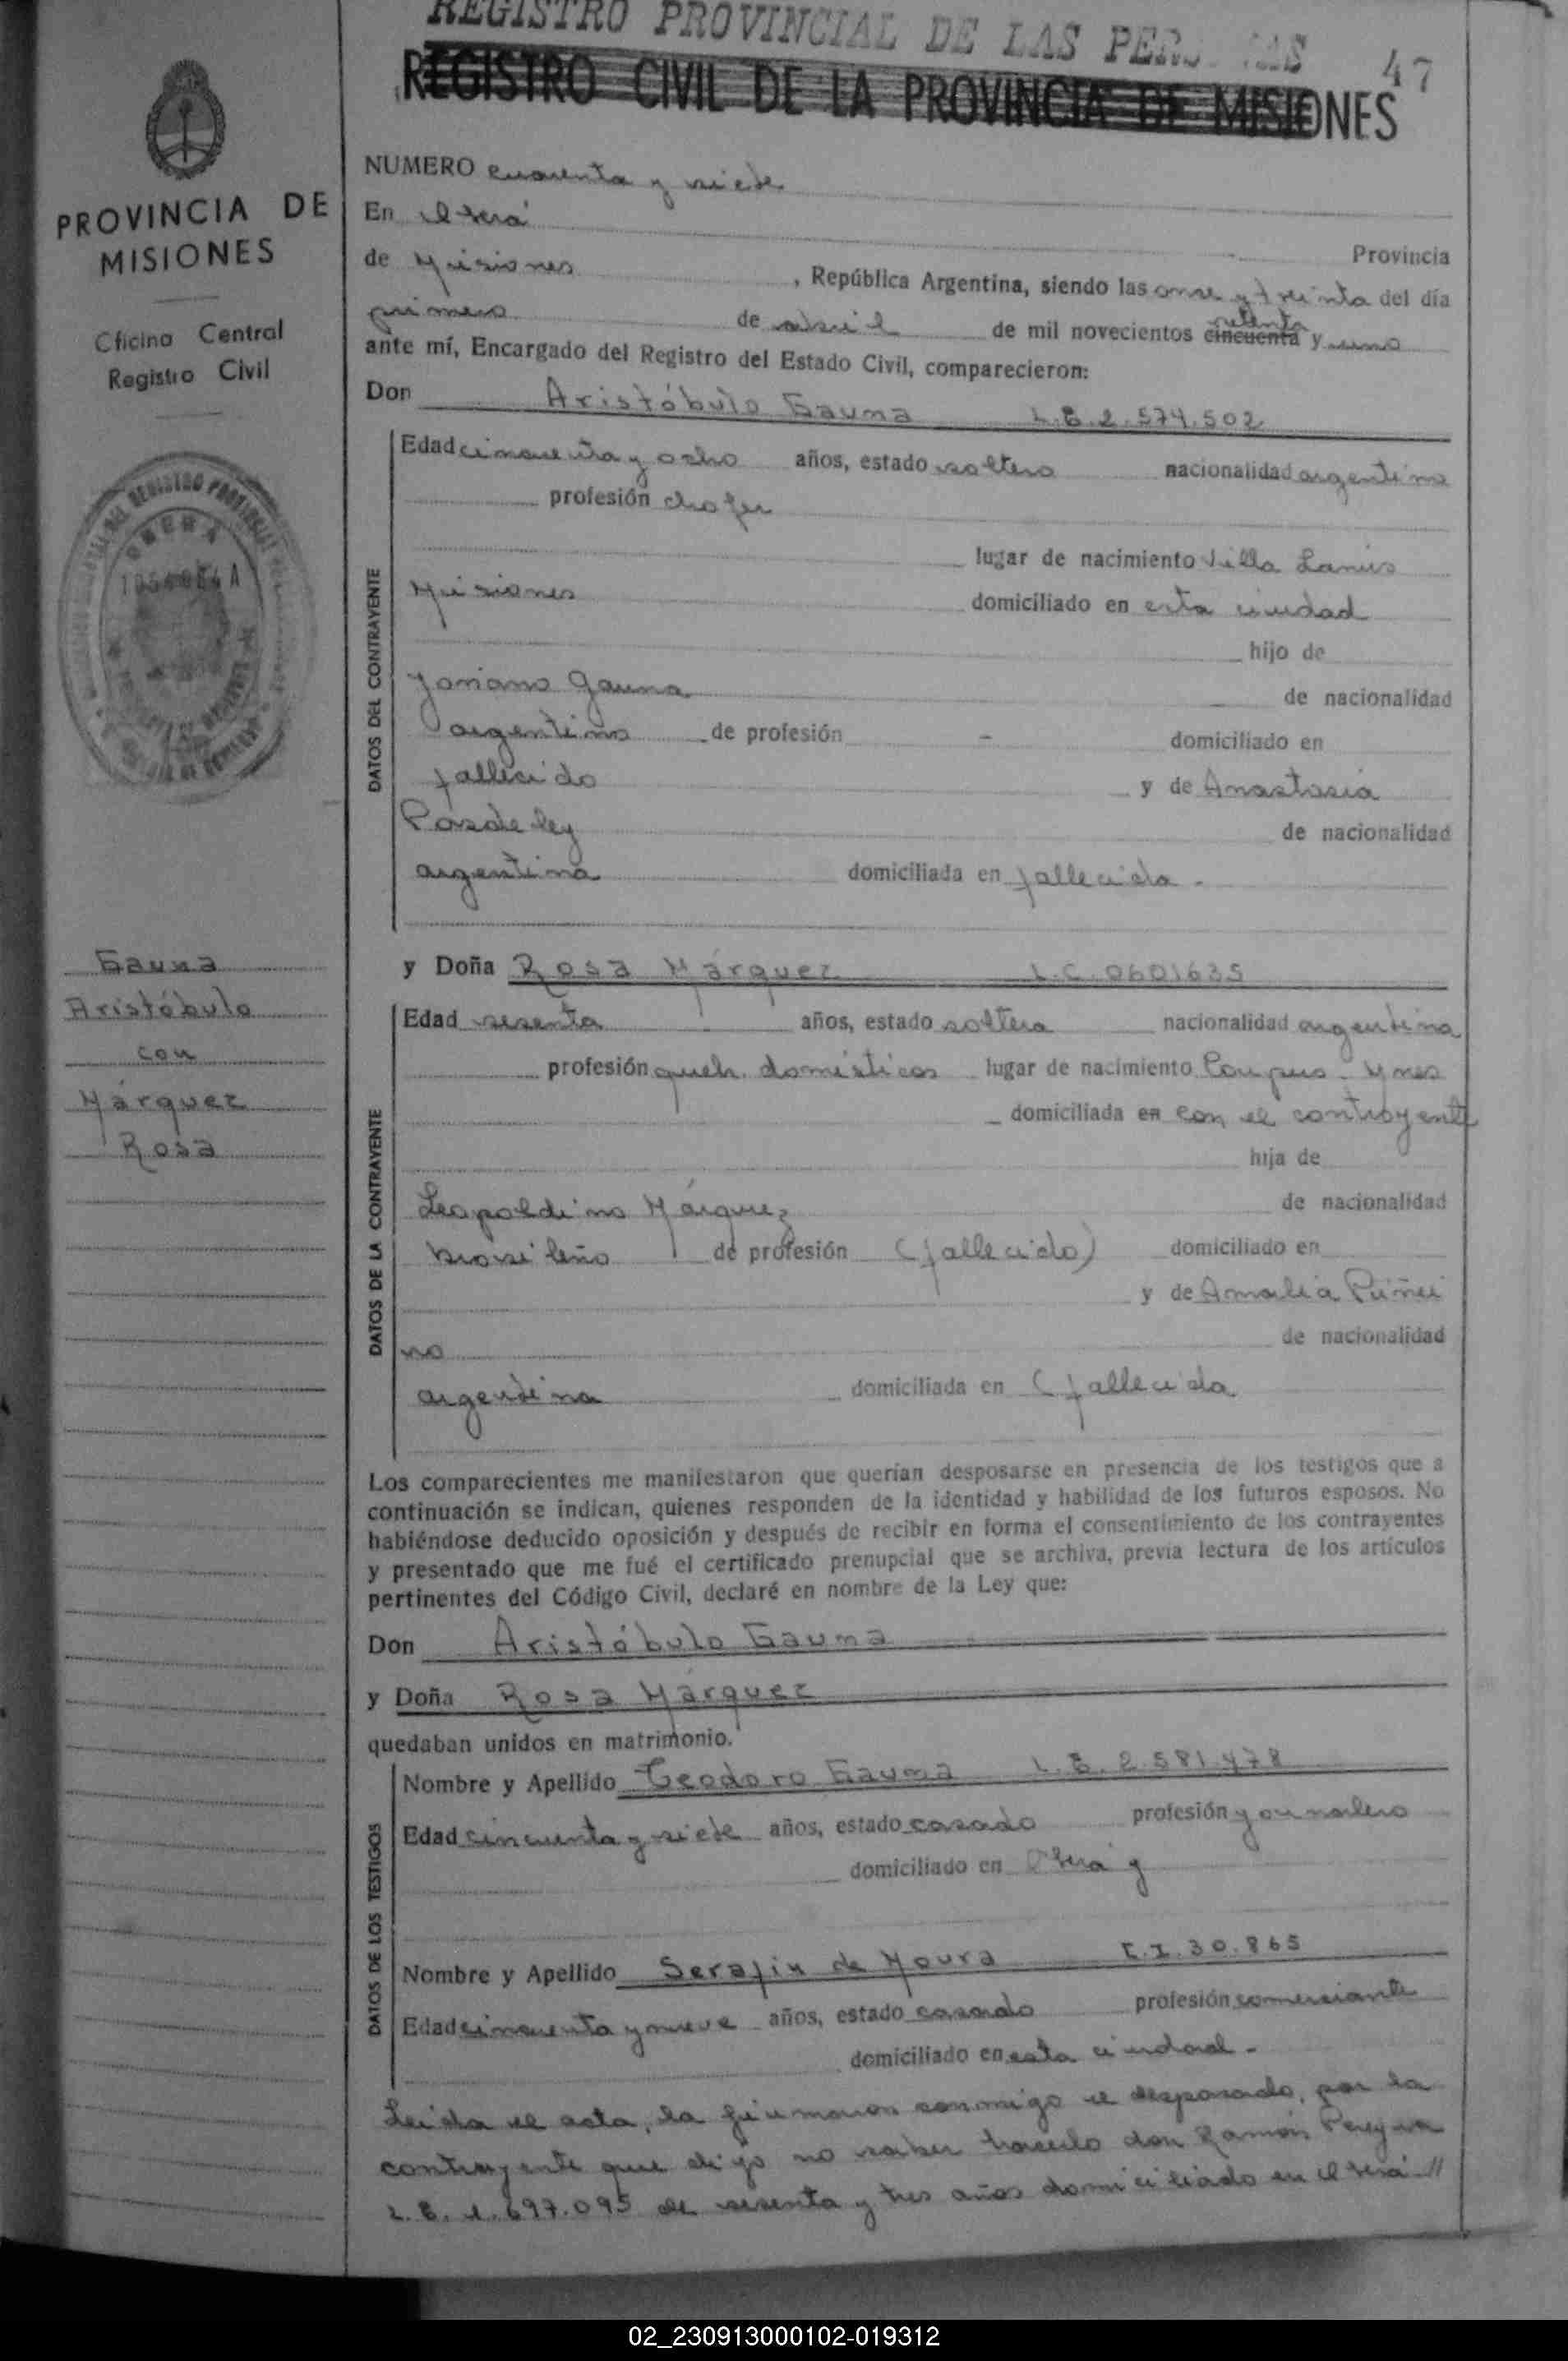 REGISTRO PROVINCIAL DE LAS PERSONAS
47
REGISTRO CIVIL DE LA PROVINCIA DE MISIONES
PROVINCIA DE
MISIONES
Oficina Central
Registro Civil
OBERÁ
Gauna
Aristóbulo
con
Márquez
Rosa
NUMERO cuarenta y siete
En Oberá
Provincia
de Misiones , República Argentina, siendo las once y treinta del día
primero de abril de mil novecientos cincuenta setenta y uno
ante mí, Encargado del Registro del Estado Civil, comparecieron:
Don Aristóbulo Gauna L.E.2.574.502
DATOS DEL CONTRAYENTE
Edad cincuenta y ocho años, estado soltero nacionalidad argentino
profesión chofer
lugar de nacimiento Villa Lanús
Misiones domiciliado en esta ciudad
hijo de
Gauna de nacionalidad
argentino de profesión - domiciliado en
fallecido y de Anastasia
de nacionalidad
argentina domiciliada en fallecida.
y Doña Rosa Márquez L.C.0601635
DATOS DE LA CONTRAYENTE
Edad sesenta años, estado soltera nacionalidad argentina
profesión queh. domésticos lugar de nacimiento
domiciliada en con el contrayente
hija de
Leopoldino Márquez de nacionalidad
brasileño de profesión (fallecido) domiciliado en
y de Amalia Piñei
ro de nacionalidad
argentina domiciliada en (fallecida
Los comparecientes me manifestaron que querían desposarse en presencia de los testigos que a
continuación se indican, quienes responden de la identidad y habilidad de los futuros esposos. No
habiéndose deducido oposición y después de recibir en forma el consentimiento de los contrayentes
y presentado que me fué el certificado prenupcial que se archiva, previa lectura de los artículos
pertinentes del Código Civil, declaré en nombre de la Ley que:
Don Aristóbulo Gauna
y Doña Rosa Márquez
quedaban unidos en matrimonio.
DATOS DE LOS TESTIGOS
Nombre y Apellido Teodoro Gauna L.E.2.581.478
Edad cincuenta y siete años, estado casado profesión jornalero
domiciliado en Oberá y
Nombre y Apellido Serafin de Moura C.I.30.865
Edad cincuenta y nueve años, estado casado profesión comerciante
domiciliado en esta ciudad.
Leída el acta, la firmaron conmigo el desposado, por la
contrayente que dijo no saber hacerlo don Ramón Pereyra
L.E.1.697.095 de sesenta y tres años domiciliado en Oberá //
02_230913000102-019312